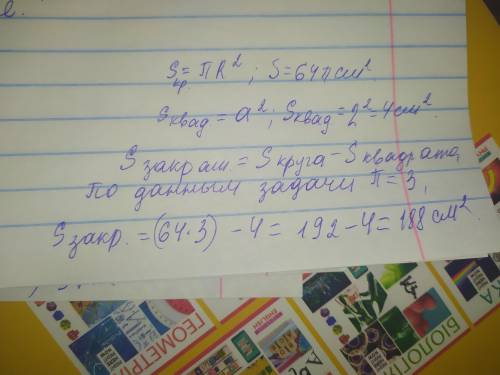 е.
Sкр. = ПR²; S=64π см².
Sквад = a²; Sквад = 2² = 4 см².
S закраш. = S круга - S квадрата,
По данным задачи П = 3,
S закр. = (64·3) - 4 = 192 - 4 = 188 см².
ГЕОМЕТРІ
ENGLISH
БІОЛОГІ